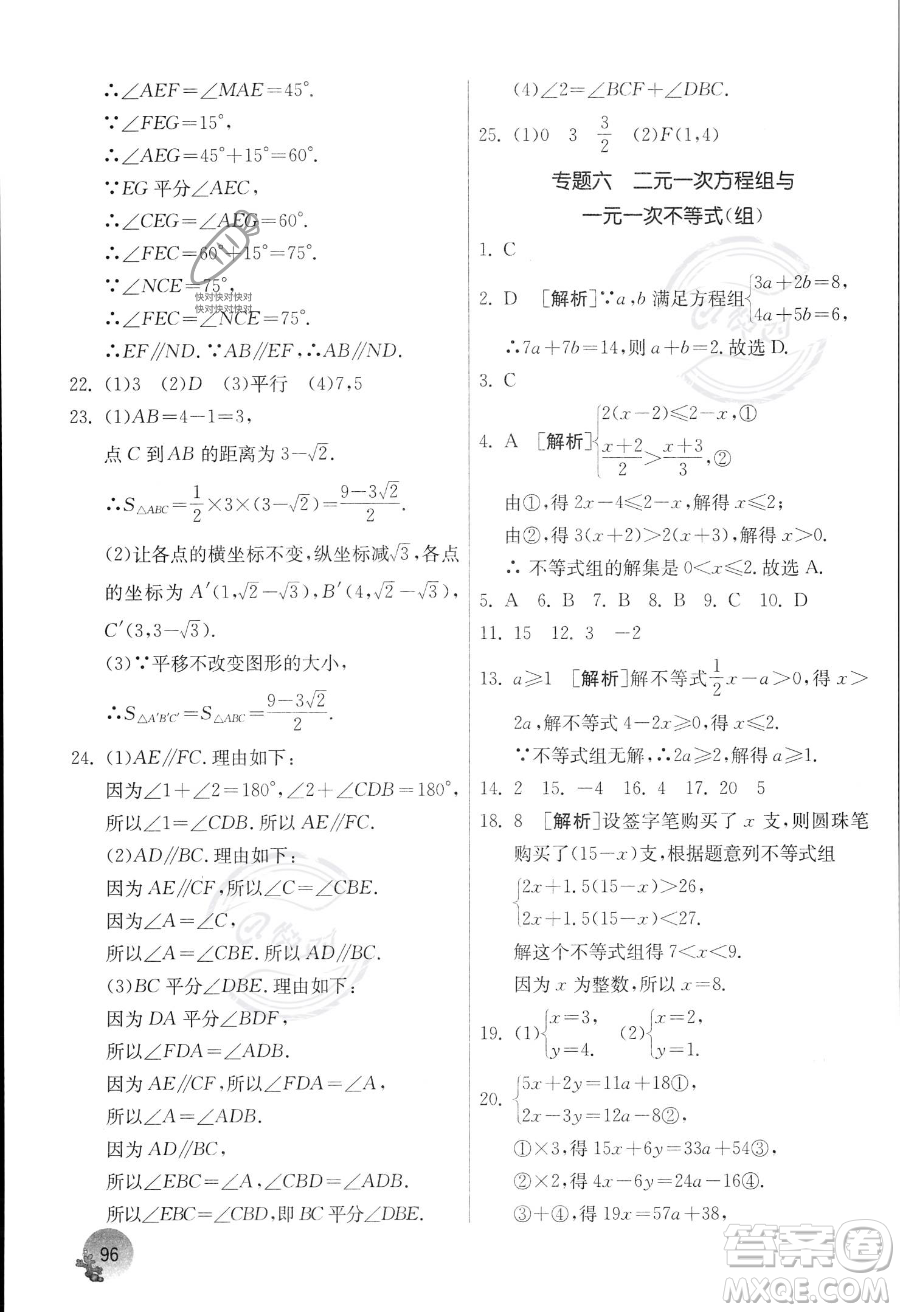 ∴∠AEF=∠MAE=45°.
∵∠FEG=15°,
∴∠AEG=45°+15°=60°.
∵EG 平分∠AEC,
∴∠CEG=∠AEG=60°.
∴∠FEC=60°+15°=75°.
∵∠NCE=75°,
∴∠FEC=∠NCE=75°.
∴EF∥ND. ∵AB∥EF,∴AB∥ND.
22. (1)3 (2)D (3)平行 (4)7,5
23. (1)AB=4-1=3,
点 C 到 AB 的距离为 3-√2.
∴S△ABC=1/2×3×(3-√2)=(9-3√2)/2.
(2)让各点的横坐标不变,纵坐标减√3,各点
的坐标为 A′(1,√2-√3),B′(4,√2-√3),
C′(3,3-√3).
(3)∵平移不改变图形的大小,
∴S△A′B′C′=S△ABC=(9-3√2)/2.
24. (1)AE∥FC. 理由如下:
因为∠1+∠2=180°,∠2+∠CDB=180°,
所以∠1=∠CDB. 所以 AE∥FC.
(2)AD∥BC. 理由如下:
因为 AE∥CF,所以∠C=∠CBE.
因为∠A=∠C,
所以∠A=∠CBE. 所以 AD∥BC.
(3)BC 平分∠DBE. 理由如下:
因为 DA 平分∠BDF,
所以∠FDA=∠ADB.
因为 AE∥CF,所以∠FDA=∠A,
所以∠A=∠ADB.
因为 AD∥BC,
所以∠EBC=∠A,∠CBD=∠ADB.
所以∠EBC=∠CBD,即 BC 平分∠DBE.
96
(4)∠2=∠BCF+∠DBC.
25. (1)0 3 3/2 (2)F(1,4)
专题六 二元一次方程组与
一元一次不等式(组)
1. C
2. D [解析]∵a,b 满足方程组{3a+2b=8,
4a+5b=6,
∴7a+7b=14,则 a+b=2. 故选 D.
3. C
4. A [解析]{2(x-2)≤2-x,①
(x+2)/2>(x+3)/3,②
由①,得 2x-4≤2-x,解得 x≤2;
由②,得 3(x+2)>2(x+3),解得 x>0.
∴ 不等式组的解集是 0<x≤2. 故选 A.
5. A 6. B 7. B 8. B 9. C 10. D
11. 15 12. 3 -2
13. a≥1 [解析]解不等式1/2x-a>0,得 x>
2a,解不等式 4-2x≥0,得 x≤2.
∵不等式组无解,∴2a≥2,解得 a≥1.
14. 2 15. -4 16. 4 17. 20 5
18. 8 [解析]设签字笔购买了 x 支,则圆珠笔
购买了(15-x)支,根据题意列不等式组
{2x+1.5(15-x)>26,
2x+1.5(15-x)<27.
解这个不等式组得 7<x<9.
因为 x 为整数,所以 x=8.
19. (1){x=3,
y=4. (2){x=2,
y=1.
20. {5x+2y=11a+18①,
2x-3y=12a-8②,
①×3,得 15x+6y=33a+54③,
②×2,得 4x-6y=24a-16④,
③+④,得 19x=57a+38,
快对快对快对
快对快对快对
答案圈
MXQE.COM